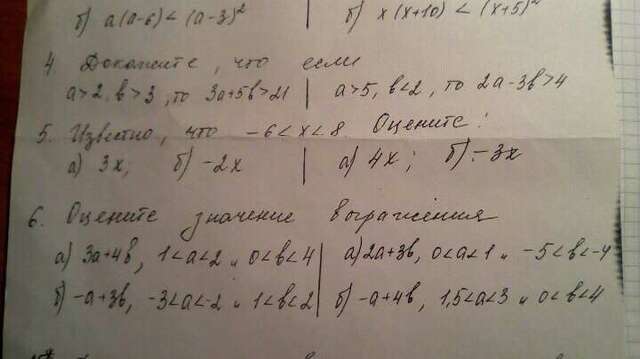 б) a(a-6) < (a-3)² | б) x(x+10) < (x+5)²
4 Докажите, что если
a>2, b>3, то 3a+5b>21 | a>5, b<2, то 2a-3b>4
5. Известно, что -6<x<8. Оцените:
а) 3x; б) -2x | а) 4x; б) -3x
6. Оцените значение выражения
а) 3a+4b, 1<a<2 и 0<b<4 | а) 2a+3b, 0<a<1 и -5<b<-4
б) -a+3b, -3<a<-2 и 1<b<2 | б) -a+4b, 1,5<a<3 и 0<b<4